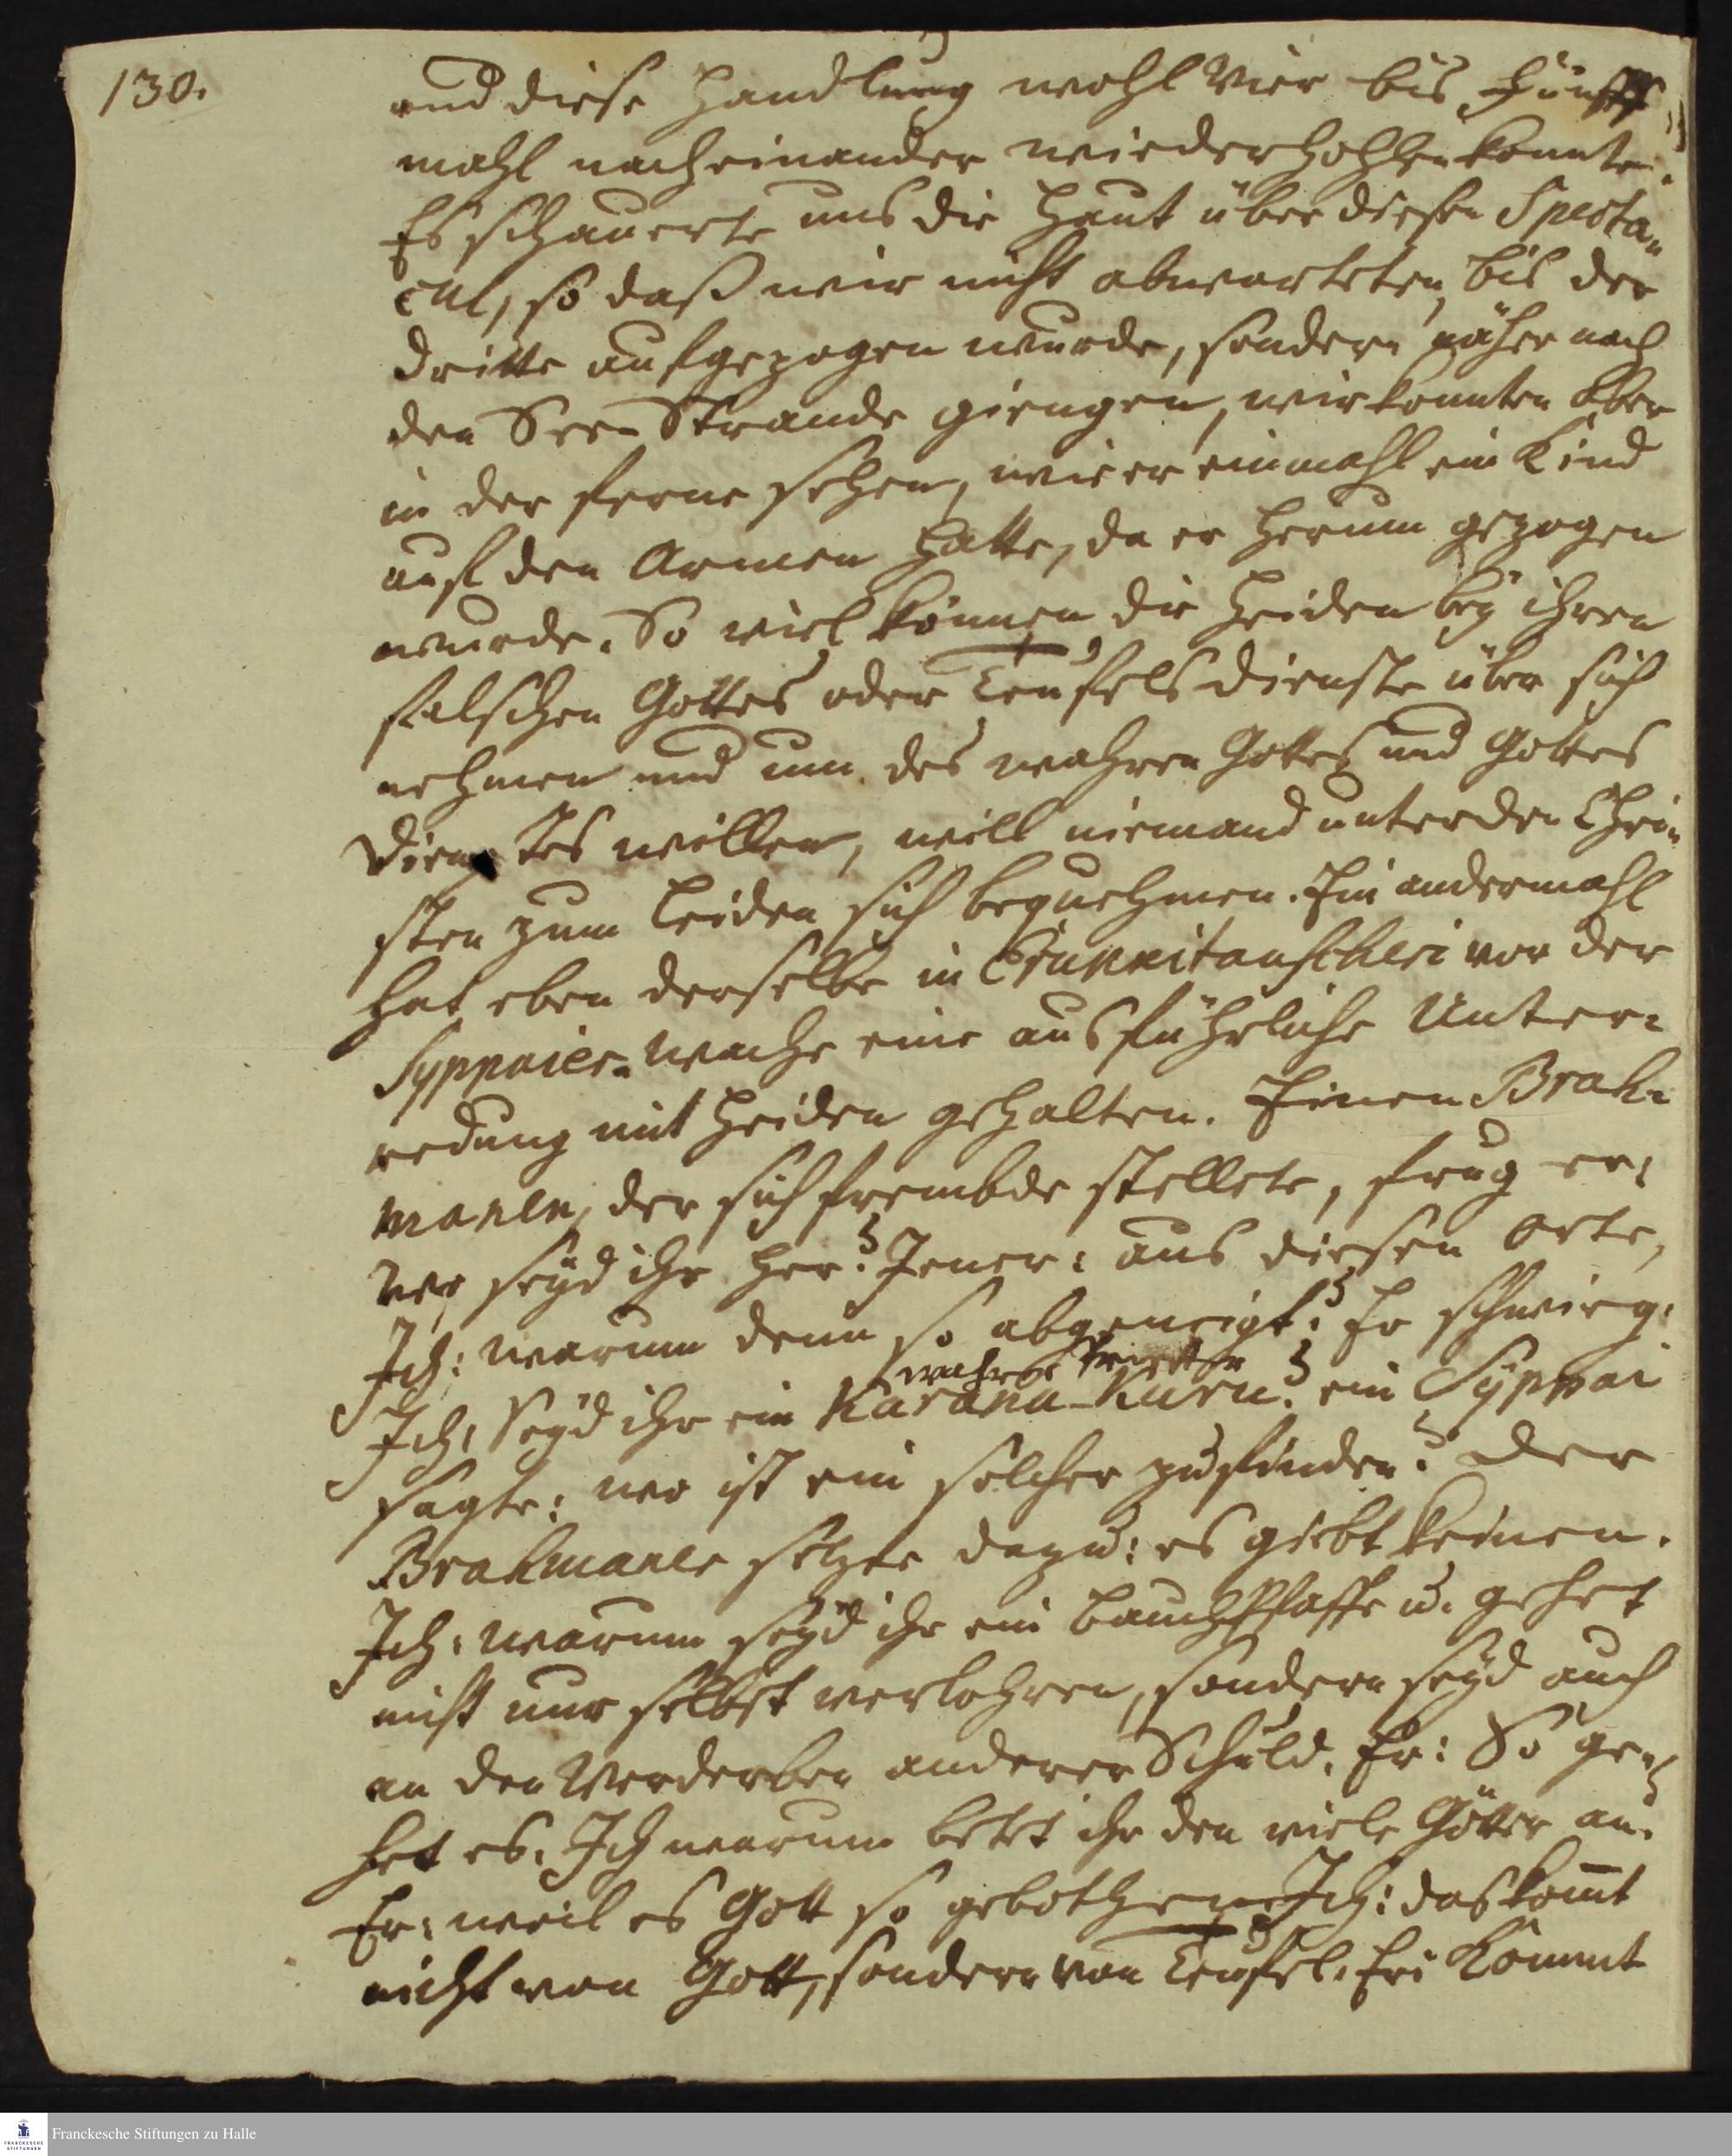 130.
und diese Handlung wohl vier bis fünff
mahl nacheinander wiederhohlen konnte.
Es schauerte uns die Haut über diesen Specta-
cul, so daß wir nicht abwarteten, bis der
dritte aufgezogen wurde, sondern näher nach
den See-Strande giengen, wir konnten aber
in der ferne sehen, wie er einmahl ein Kind
auf den Armen hatte, da er herum gezogen
wurde. So viel können die Heiden bey ihren
falschen Gottes oder Teufelsdienste über sich
nehmen und um des wahren Gottes und Gottes
Dienstes willen, will niemand unter den Chri-
sten zum Leiden sich bequehmen. Ein andermahl
hat eben derselbe in vor der
Syppaier-Wache eine ausführliche Unter-
redung mit Heiden gehalten. Einen Brah-
manen, der sich frembde stellete, frug er:
Wo seyd ihr her? Jener: aus diesen Orte,
Ich: warum denn so abgeneigt? Er schwieg.
wahrer Priester
Ich: Seyd ihr ein Karana-Kuru? ein Syppai
sagte: wo ist ein solcher zu finden? Der
Brahmaner setzte dazu: es giebt keinen.
Ich: warum seyd ihr ein Bauchpfaffe u. gehet
nicht nur selbst verlohren, sondern seyd auch
an den Verderben anderer Schuld. Er: So ge-
het es. Ich warum betet ihr den viele Götter an?
Er: weil es Gott so gebothen. Ich: das komt
nicht von Gott, sondern von Teufel. Er: Kommt
Franckesche Stiftungen zu Halle
FRANCKESCHE
STIFTUNGEN